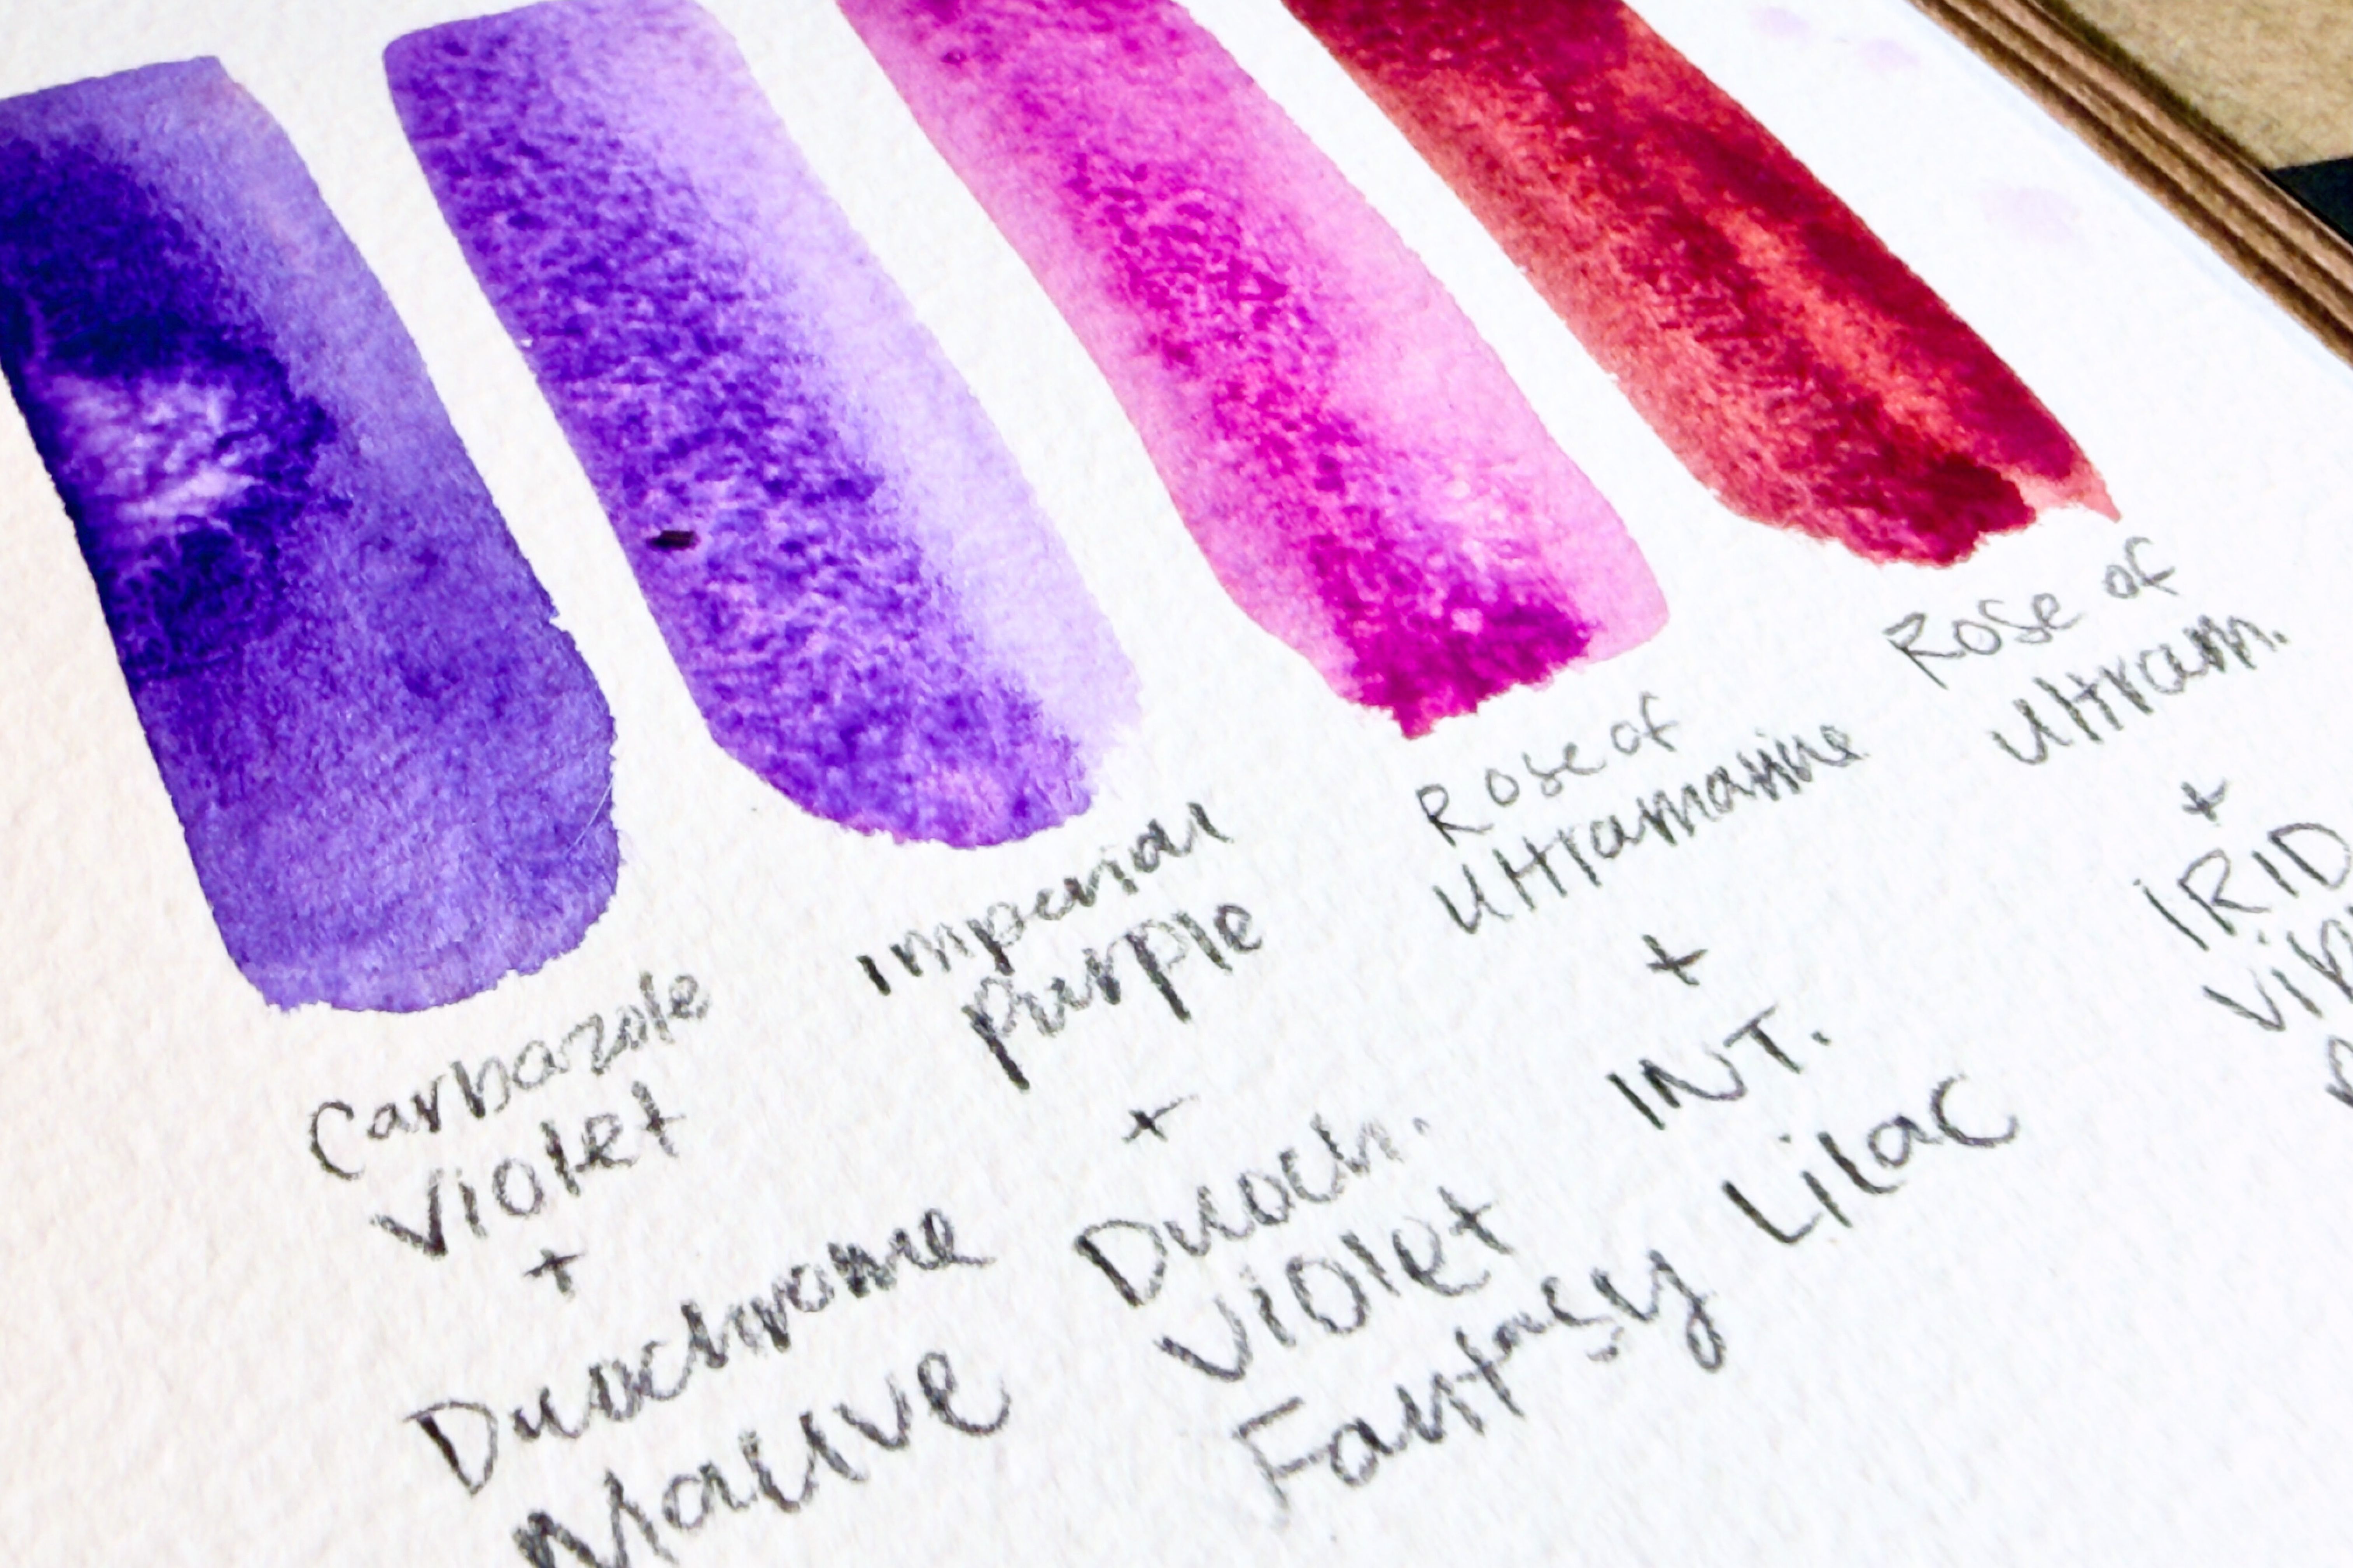 Carbazole
Violet
+
Duochrome
Mauve
Imperial
Purple
+
Duoch.
Violet
Fantasy
Rose of
Ultramarine
+
INT.
Lilac
Rose of
Ultram.
+
IRID